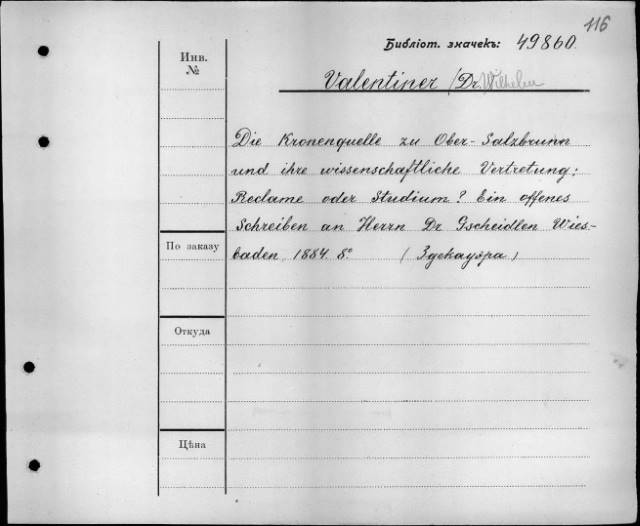 116
Библіот. значекъ: 49860.
Инв.
№
Valentiner (Dr. Wilhelm
Die Kronenquelle zu Ober-Salzbrunn
und ihre wissenschaftliche Vertretung:
Reclame oder Studium? Ein offenes
Schreiben an Herrn Dr Gscheidlen Wies-
По заказу
baden, 1884. 8° (Здекауэра)
Откуда
Цѣна